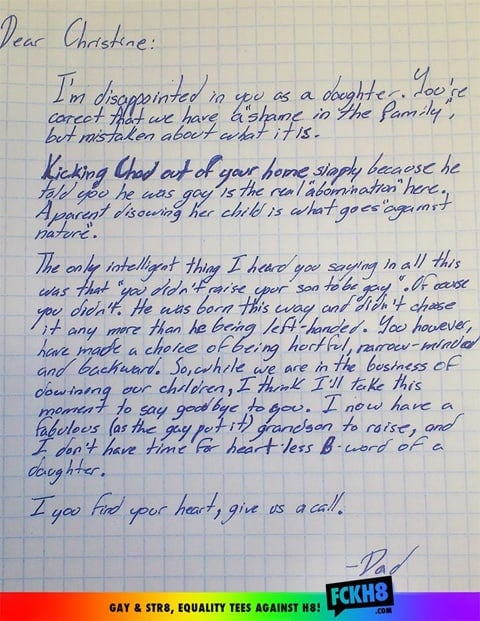 Dear Christine:
I'm disappointed in you as a daughter. You're
corect that we have a "shame in the family",
but mistaken about what it is.
Kicking Chad out of your home simply because he
told you he was gay is the real "abomination" here.
A parent disowing her child is what goes "against
nature".
The only intelligent thing I heard you saying in all this
was that "you didn't raise your son to be gay". Of couse
you didn't. He was born this way and didn't choose
it any more than he being left-handed. You however,
have made a choice of being hurtful, narrow-minded
and backward. So, while we are in the business of
dowining our children, I think I'll take this
moment to say goodbye to you. I now have a
fabulous (as the gay put it) grandson to raise, and
I don't have time for heart-less B-word of a
daughter.
I you find your heart, give us a call.
-Dad
GAY & STR8, EQUALITY TEES AGAINST H8! FCKH8
.COM